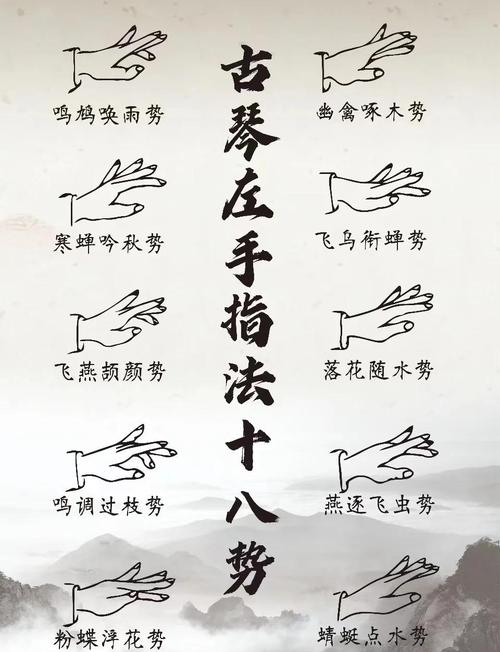 古琴左手指法十八势
鸣鸠唤雨势
幽禽啄木势
寒蝉吟秋势
飞鸟衔蝉势
飞燕颉颜势
落花随水势
鸣调过枝势
燕逐飞虫势
粉蝶浮花势
蜻蜓点水势